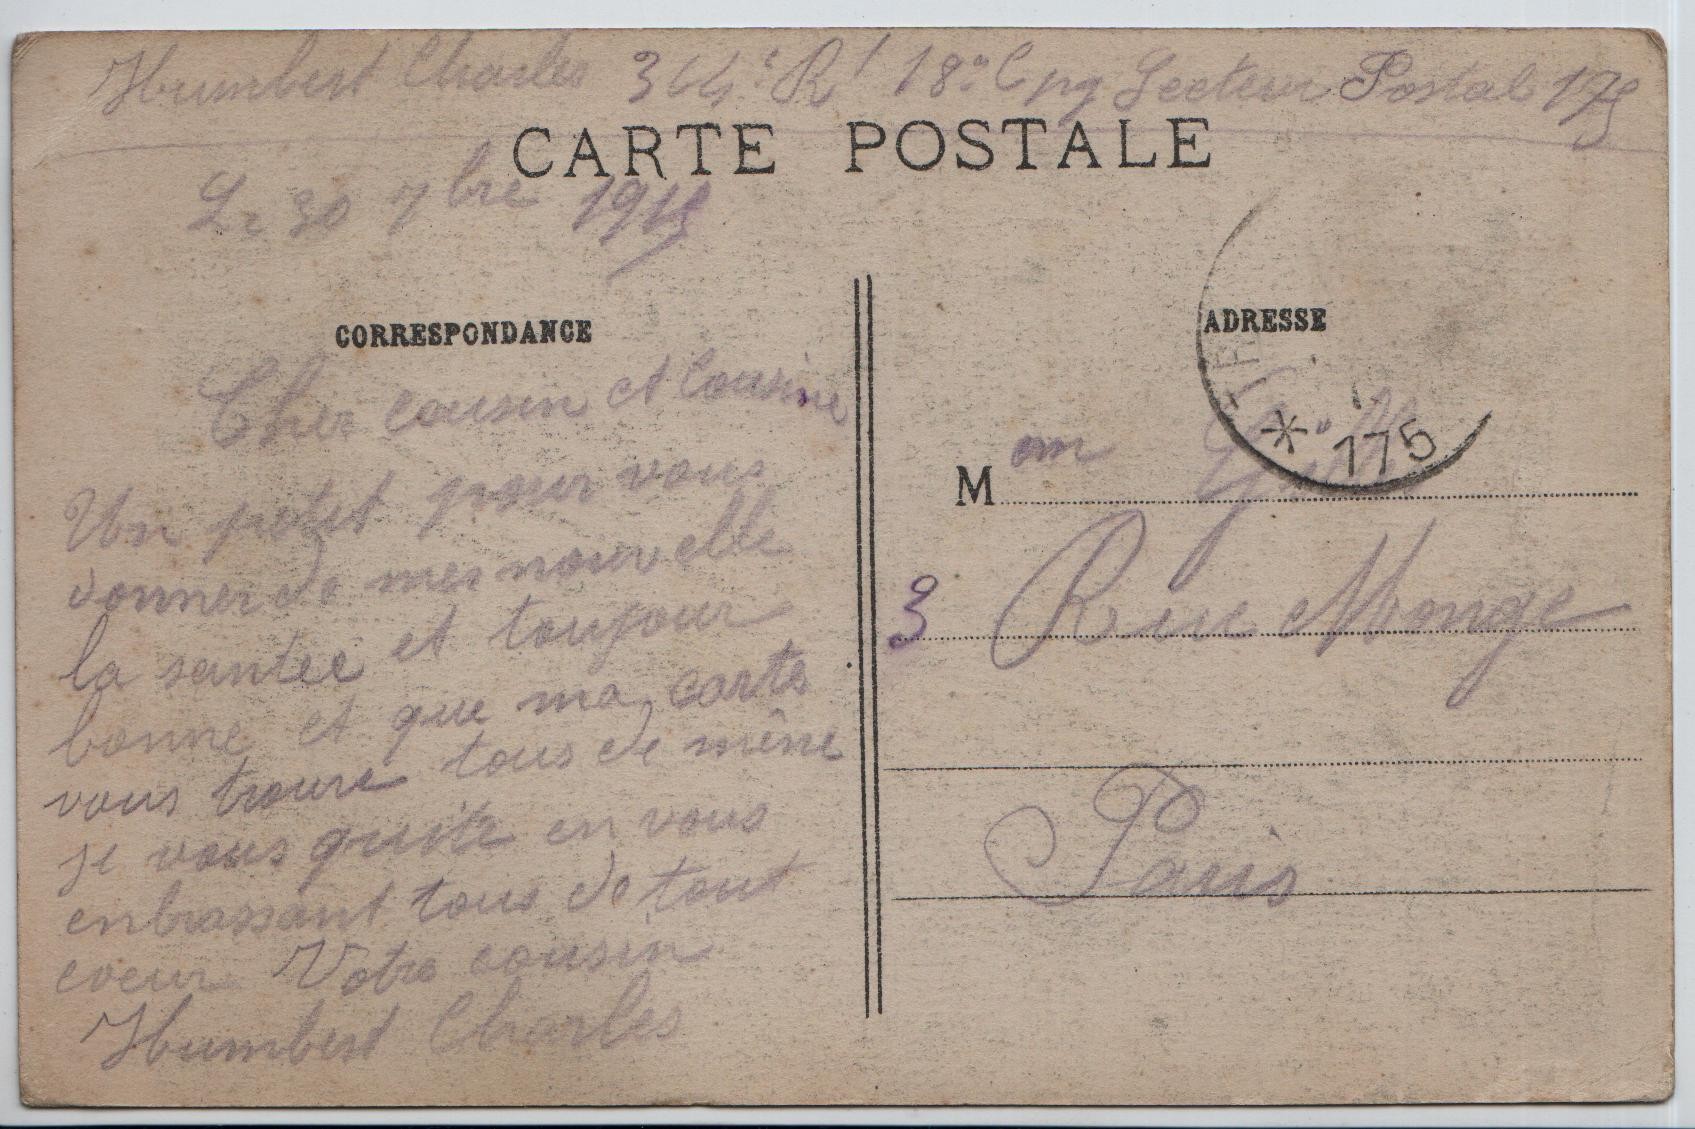 Humbert Charles 344e Rt 18e Cpg Secteur Postal 175
CARTE POSTALE
Le 30 7bre 1915
CORRESPONDANCE
ADRESSE
Cher cousin et Cousine
Un petit pour vous
donner de mes nouvelle
la santée et toujour
bonne et que ma carte
vous trouve tous de mêne
je vous quite en vous
enbrassant tous de tout
coeur Votre cousin
Humbert Charles
* 175
M
3 Rue Monge
Paris